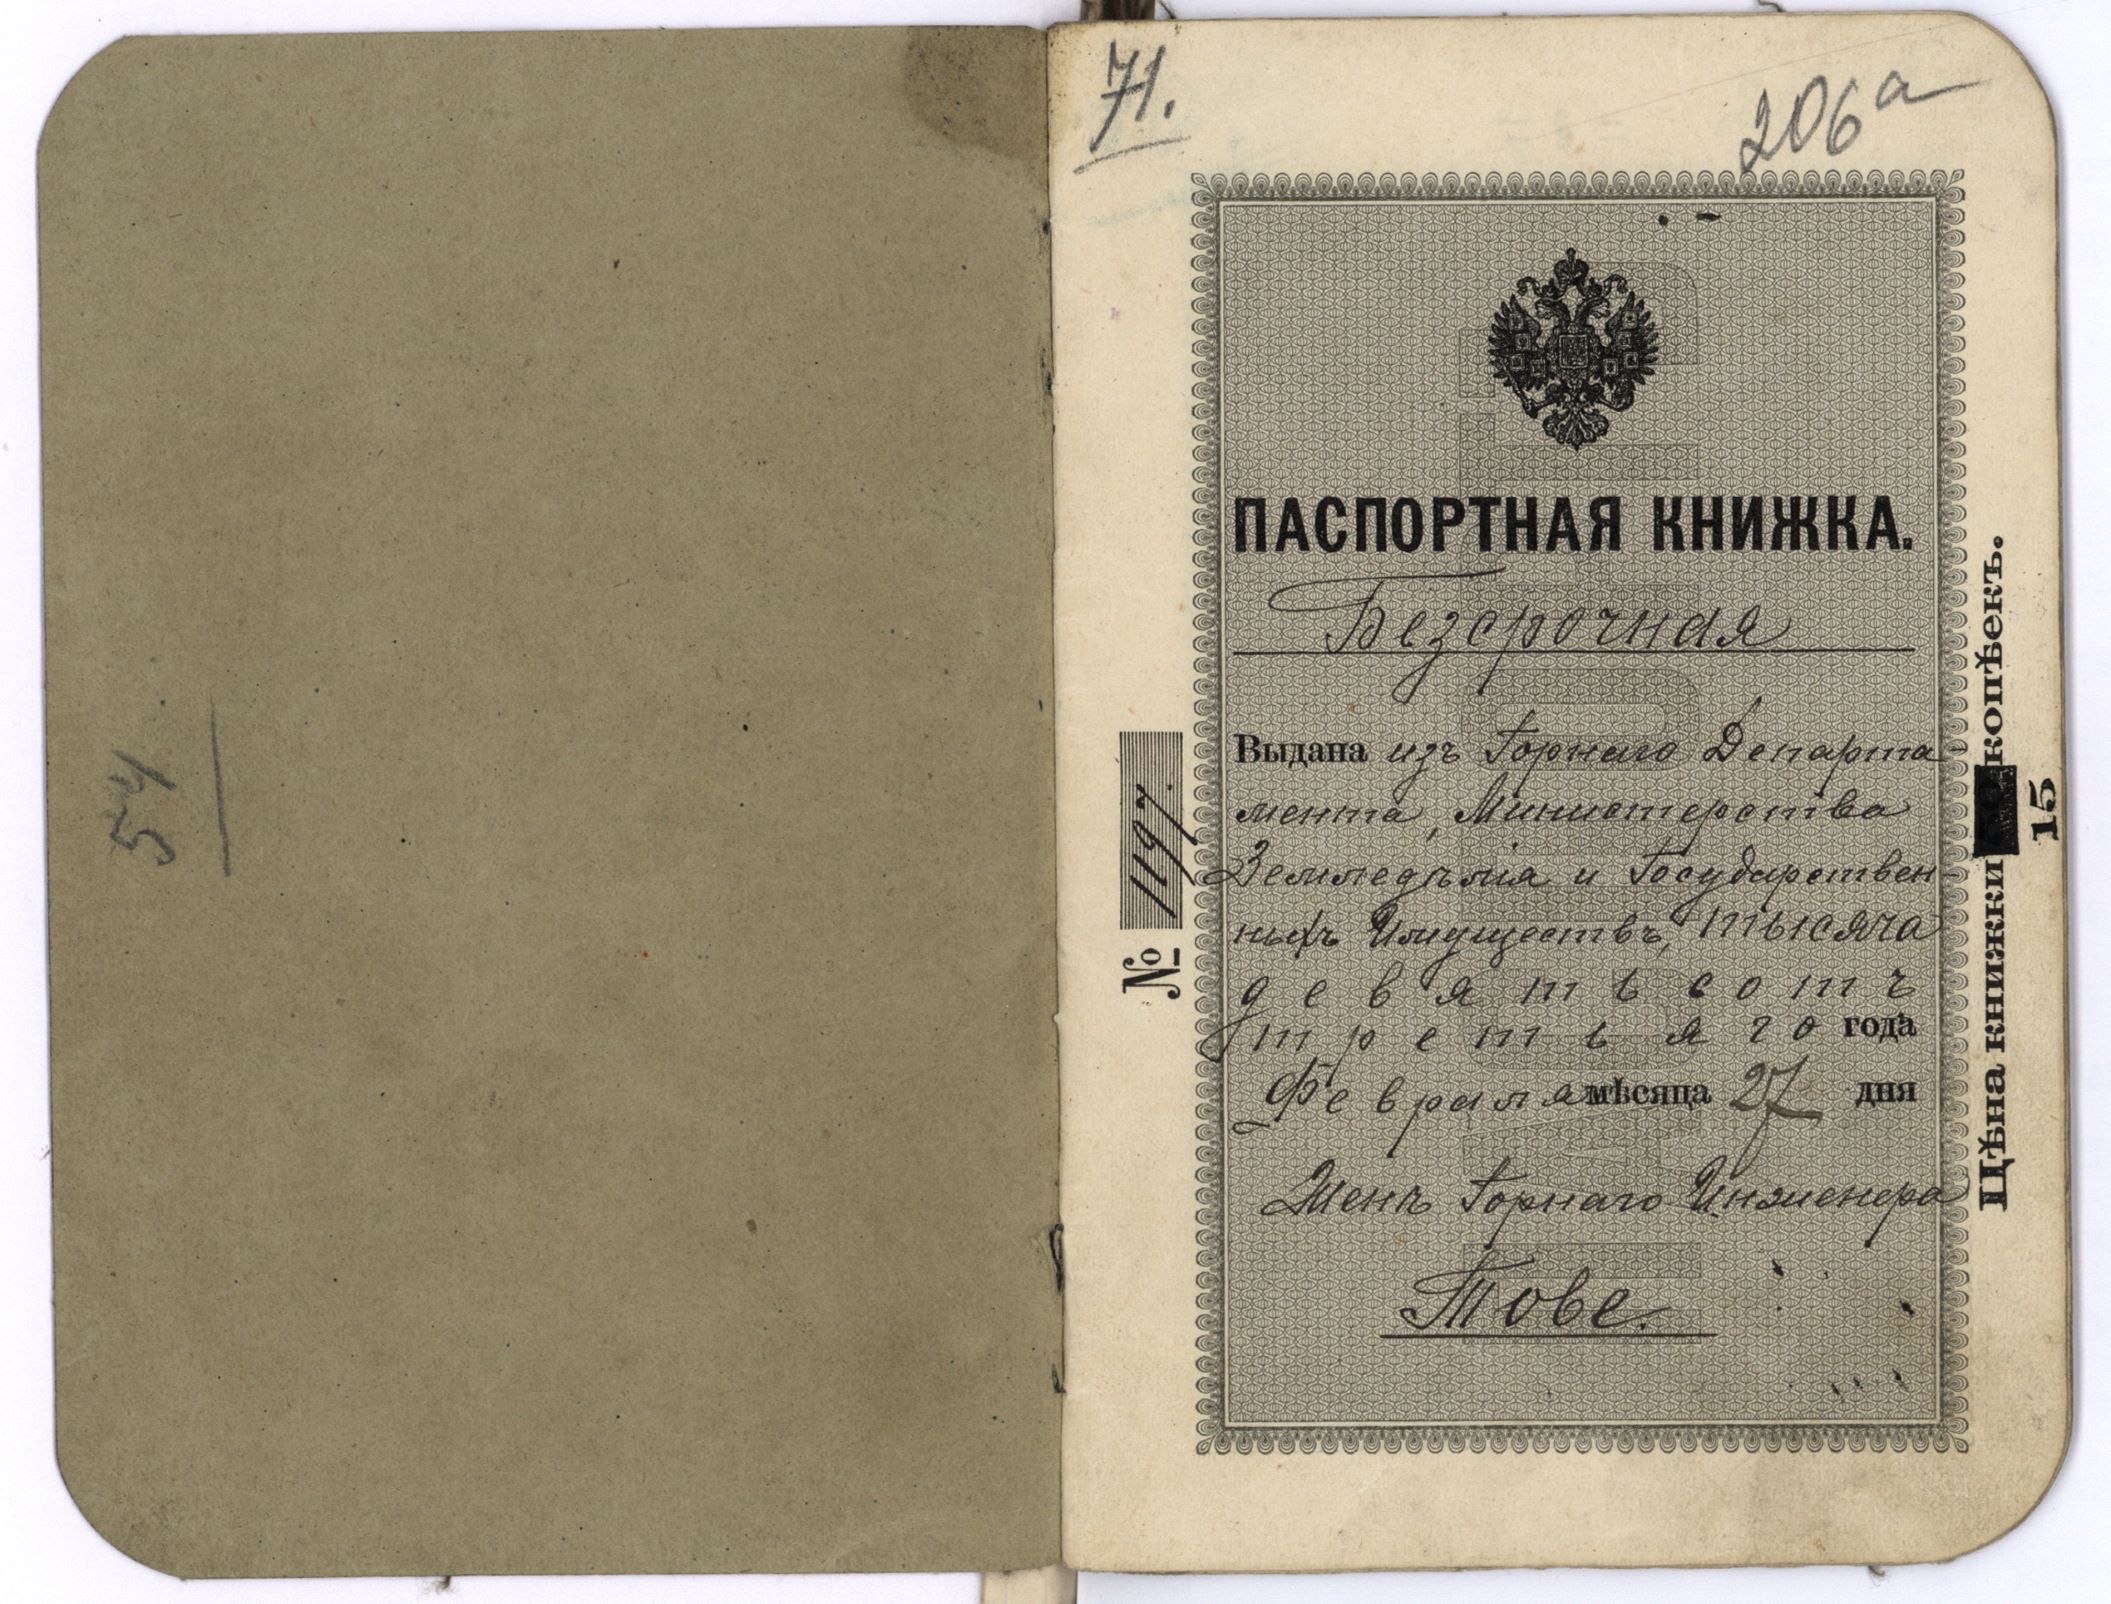 54
71.
206а
ПАСПОРТНАЯ КНИЖКА.
Безсрочная
Выдана изъ Горнаго Департа
мента, Министерства
Земледѣлія и Государствен
ныхъ Имуществъ, тысяча
девятьсотъ
третьяго года
Февраля мѣсяца 27 дня
Женѣ Горнаго Инженера
Тове.
№ 1197
Цѣна книжки копѣекъ.
15